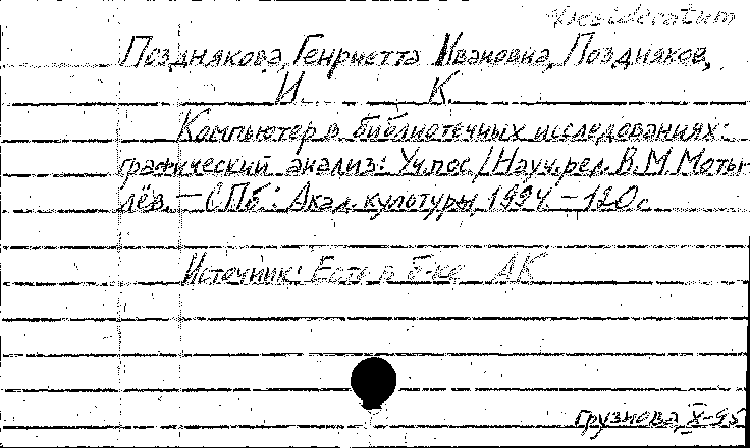 Desideratum
Позднякова, Генриетта Ивановна, Поздняков,
И. К.
Компьютер в библиотечных исследованиях:
графический анализ: Уч.пос. / Науч.рел. В.М. Моты-
лёв. – СПб.: Акад. культуры, 1994. – 120 с.
Источник: Есть в б-ке АК
Грузнова, X-95